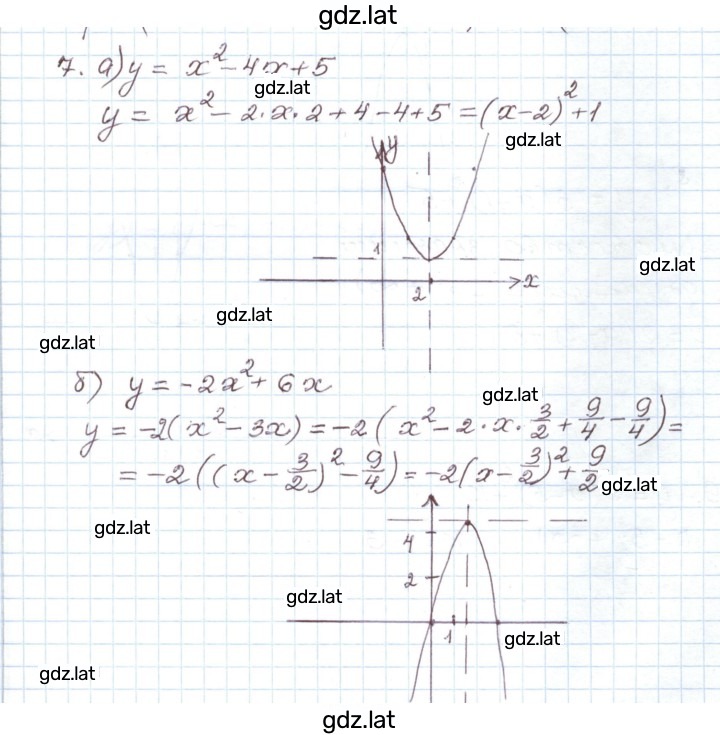 gdz.lat
7. а) y = x² - 4x + 5
gdz.lat
y = x² - 2·x·2 + 4 - 4 + 5 = (x-2)² + 1
gdz.lat
y
1
gdz.lat
x
2
gdz.lat
gdz.lat
б) y = -2x² + 6x
gdz.lat
y = -2(x² - 3x) = -2(x² - 2·x·3/2 + 9/4 - 9/4) =
= -2((x - 3/2)² - 9/4) = -2(x - 3/2)² + 9/2
gdz.lat
gdz.lat
4
2
gdz.lat
1
gdz.lat
gdz.lat
gdz.lat